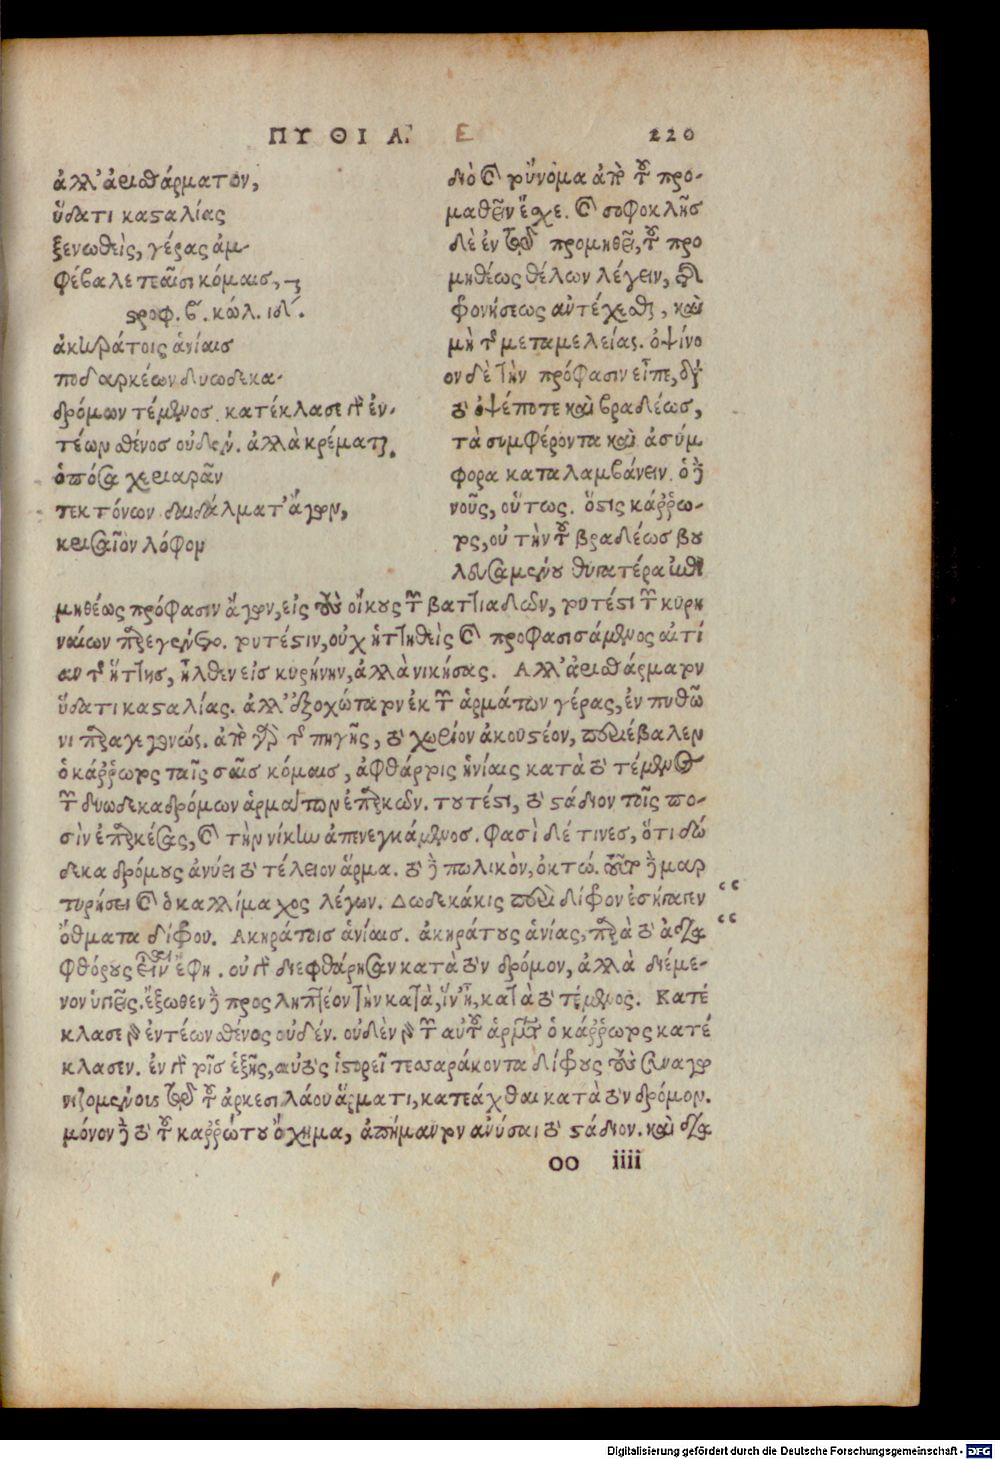 ΠΥΘΙΑ. Ε 220
ἀλλ' ἀριθάρματον,
ὕδατι κασταλίας
ξενωθεὶς, γέρας ἀμ-
φέβαλε τεαῖσι κόμαις,
στροφ. β. κώλ. ιδ.
ἀκηράτοις ἁνίαις
ποδαρκέων δυωδεκα-
δρόμων τέμενος. κατέκλασε γὰρ ἐν-
τέων σθένος οὐδέν. ἀλλὰ κρέμαται,
ὁπόσα χεριαρᾶν
τεκτόνων δαιδάλματ' ἄγων,
κρισαῖον λόφον
διὸ καὶ τοὔνομα ἀπὸ τοῦ προ-
μαθεῖν ἔχε. καὶ σοφοκλῆς
δὲ ἐν τῷ προμηθεῖ, τοῦ προ
μηθέως θέλων λέγειν,
φρονήσεως ἀντέχεσθαι, καὶ
μὴ τῆς μεταμελείας. ὀψίνο
ον δὲ τὴν πρόφασιν εἶπε, διὰ
τὸ ὀψέποτε καὶ βραδέως,
τὰ συμφέροντα καὶ ἀσύμ
φορα καταλαμβάνειν. ὁ δὲ
νοῦς, οὕτως. ὅστις κάῤῥω-
τος, οὐ τὴν τοῦ βραδέως βου
λευσαμένου θυγατέρα ἐπι
μηθέως πρόφασιν ἄγων, εἰς τοὺς οἴκους τῶν βαττιαδῶν, τουτέστι τῶν κυρη
ναίων παρεγένετο. τουτέστιν, οὐχ ἡττηθεὶς καὶ προφασισάμενος αἰτί
αν τῆς ἥττης, ἦλθεν εἰς κυρήνην, ἀλλὰ νικήσας. Ἀλλ' ἀριθάρματον
ὕδατι κασταλίας. ἀλλ' ἐξοχώτατον ἐκ τῶν ἁρμάτων γέρας, ἐν πυθῶ
νι παραγεγονώς. ἀπὸ γὰρ τῆς πηγῆς, τὸ χωρίον ἀκουστέον, περιέβαλεν
ὁ κάῤῥωτος ταῖς σαῖς κόμαις, ἀφθάρτοις ἡνίαις κατὰ τὸ τέμενος
τῶν δυωδεκαδρόμων ἁρμάτων ἐπαρκῶν. τουτέστι, τὸ στάδιον τοῖς πο-
σὶν ἐπαρκέσας, καὶ τὴν νίκην ἀπενεγκάμενος. Φασὶ δέ τινες, ὅτι δώ
δεκα δρόμους ἀνύει τὸ τέλειον ἅρμα. τὸ δὲ πωλικὸν, ὀκτώ. τοῦτο δὲ μαρ
τυρήσει καὶ ὁ καλλίμαχος λέγων. Δωδεκάκις περὶ δίφρον ἐπήγαγεν “
ὄθματα δίφρου. Ἀκηράτοις ἁνίαις. ἀκηράτους ἁνίας, παρὰ τὸ ἀδια “
φθόρους εἶναι ἔφη. οὐ γὰρ διεφθάρησαν κατὰ τὸν δρόμον, ἀλλὰ διέμε-
νον ὑγιεῖς. ἔξωθεν δὲ προσληπτέον τὴν κατὰ, ἵν' ᾖ, κατὰ τὸ τέμενος. Κατέ
κλασε γὰρ ἐντέων σθένος οὐδέν. οὐδὲν γὰρ τῶν αὐτοῦ ἁρμάτων ὁ κάῤῥωτος κατέ
κλασεν. ἐν γὰρ τοῖς ἑξῆς, αὐτὸς ἱστορεῖ τεσσαράκοντα δίφρους τοὺς συναγω
νιζομένους τῷ τοῦ ἀρκεσιλάου ἅρματι, κατεάχθαι κατὰ τὸν δρόμον.
μόνον δὲ τὸ τοῦ καῤῥώτου ὄχημα, ἀπήμαντον ἀνύσαι τὸ στάδιον. καὶ δια
οο iiii
Digitalisierung gefördert durch die Deutsche Forschungsgemeinschaft - DFG